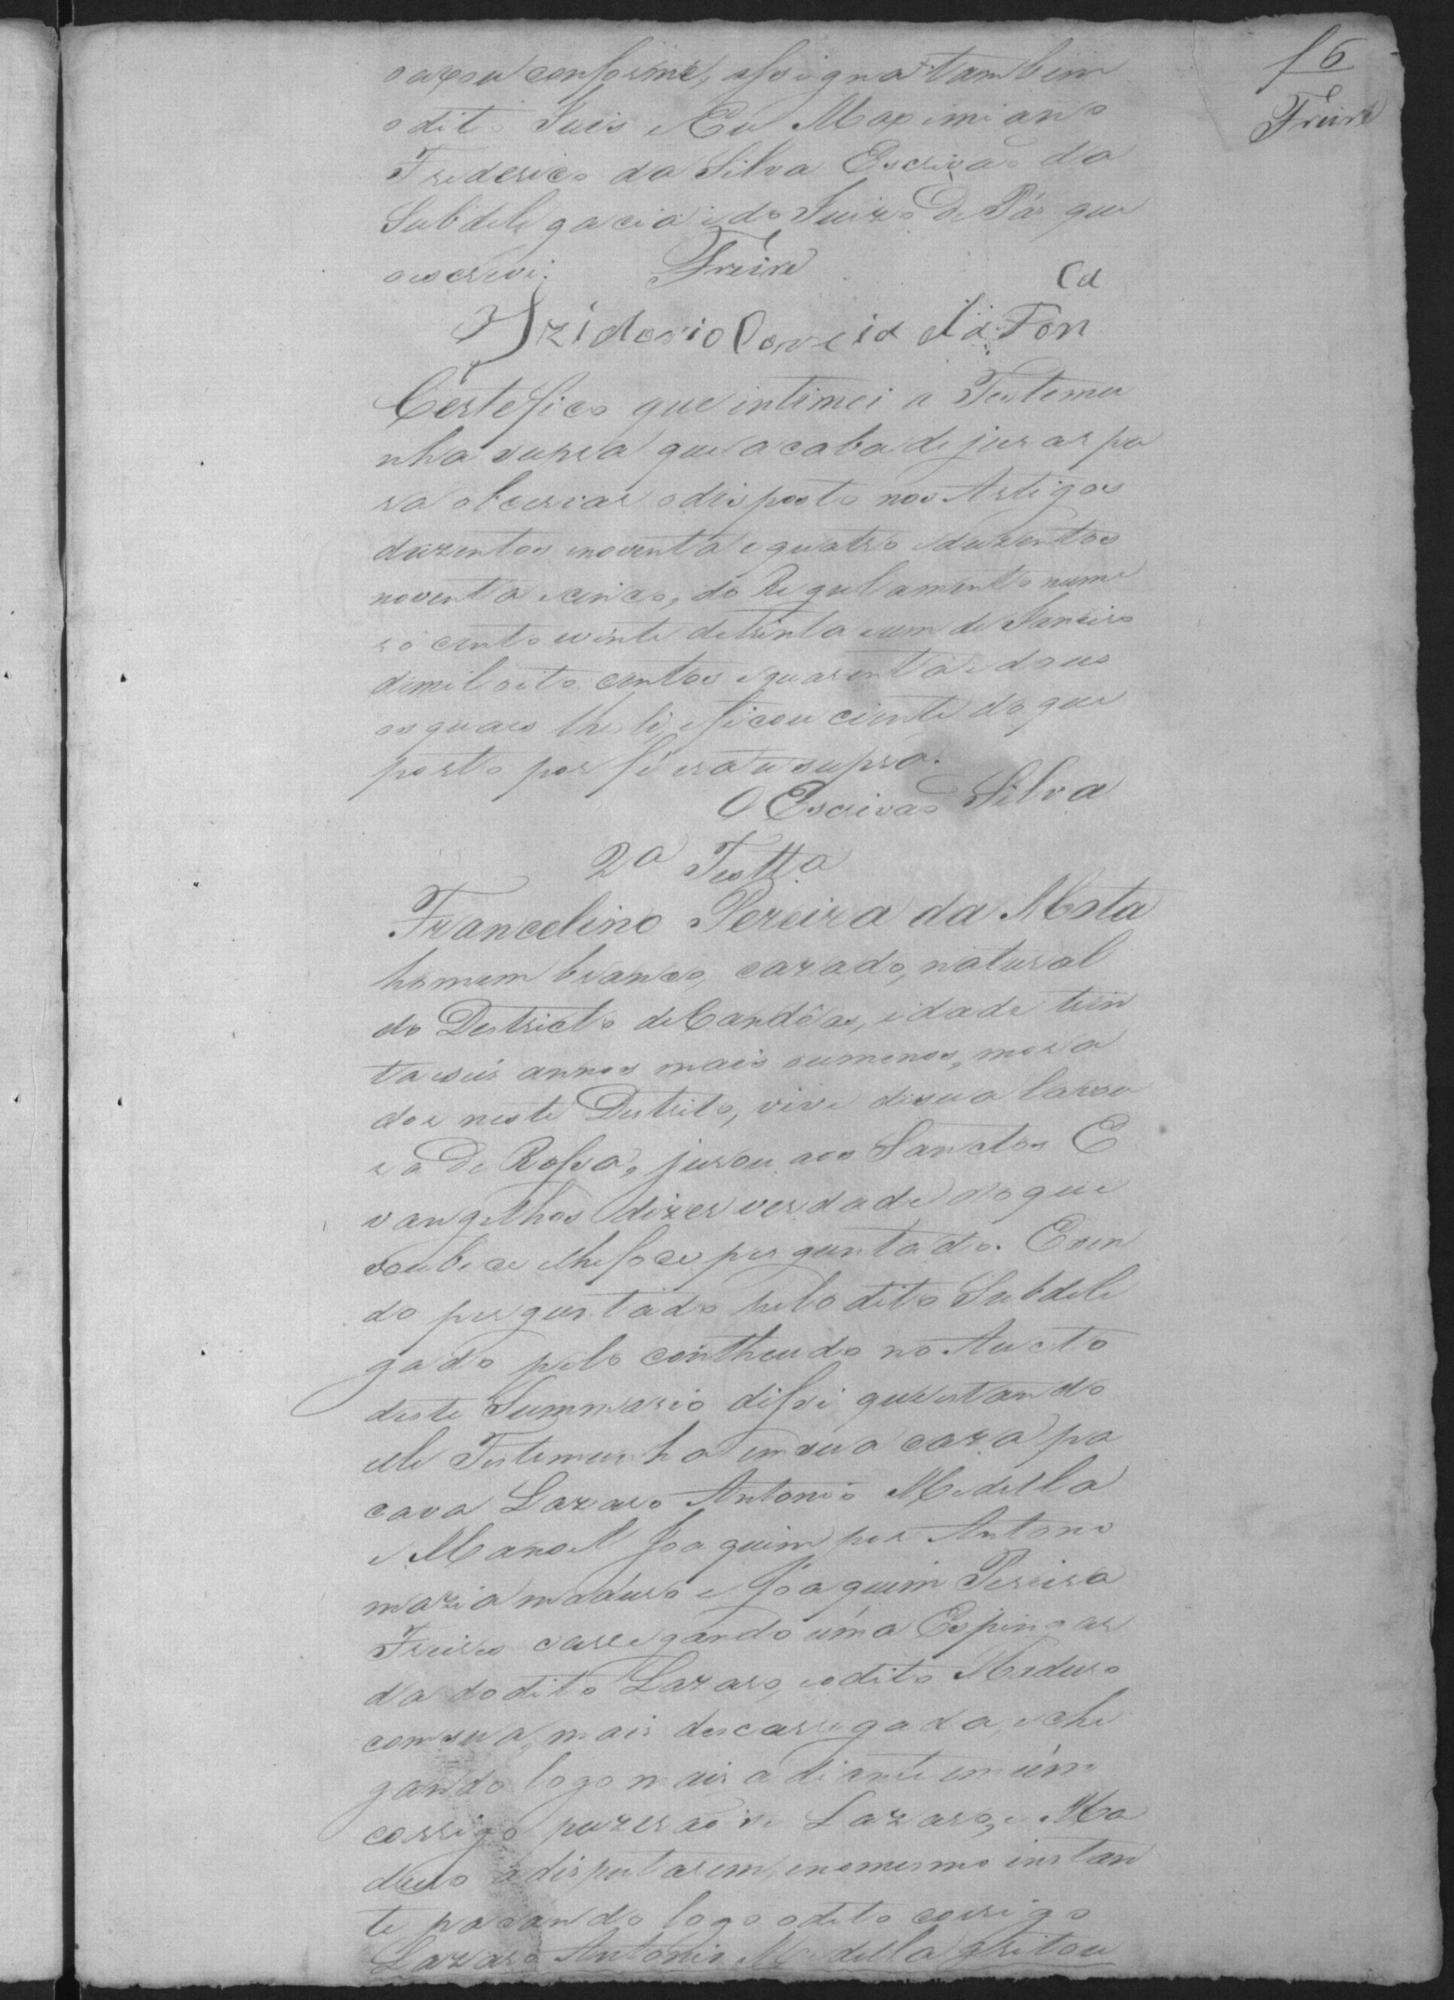 16
Freire
o axou conforme, assigna tambem
o dito Juis e Eu Maximiano
Frederico da Silva Escrivão da
Subdelegacia e do Juizo de Páz que
o escrevi. Freire
Izidorio Correia da Fon Cª
Certefico que intimei a Testemu
nha supra que acaba de jurar pa
ra obcervar o disposto nos Artigos
duzentos enoventa e quatro eduzentos
noventa ecinco, do Regulamento nume
ro cento evinte detrinta eum de Janeiro
demil oito centos equarenta e dous
os quaes lhe li eficou ciente do que
porto por fé era ut supra.
O Escrivão Silva
2ª Testtª
Francelino Pereira da Mota
homem branco, cazado, natural
do Destricto de Candêas, idade trin
ta eseis annos mais oumenos, mora
dor neste Destrito, vive desua lavou
ra de Rossa, jurou aos Sanctos E
vangelhos dizer verdade do que
soubece elhefoce perguntado. Esen
do perguntado pelo dito Subdele
gado pelo contheudo no Aucto
deste Summario disse que estando
elle Testemunha emsua caza pa
cava Lazaro Antonio Medella
e Manoel Joaquim por Antonio
maria maduro e Joaquim Pereira
Freire carregando uma Espingar
da do dito Lazaro, eodito Maduro
comsua, mais descarregada, eche
gando logo mais adiante em úm
corrigo puzerão se Lazaro, e Ma
duro adisputarem, enomesmo instan
te pacando logo odito corrigo
Lazaro Antonio Medella gritou